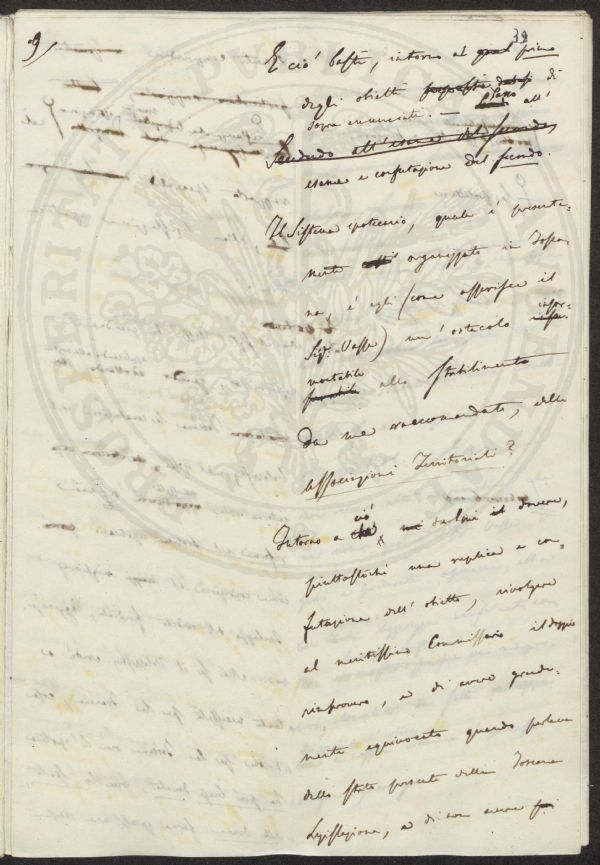 9/
39
E ciò basti, intorno al primo
degli obietti di
sopra enunciati. — Passo all'
Scendendo all'esame del secondo,
esame e confutazione del secondo.
Il Sistema ipotecario, quale è presente-
mente organizzato in Tosca-
na, è egli (come asserisce il
Sigr. ) un'ostacolo insor-
montabile allo stabilimento
da me raccomandato, delle
associazioni Territoriali?
Intorno a ciò dovere,
piuttostochè una replica e con-
futazione dell'obietto, rivolgere
al meritissimo Commissario il doppio
rimprovero, e di avere grande-
mente equivocato quando parlava
dello stato presente della Toscana
Legislazione, e di non avere